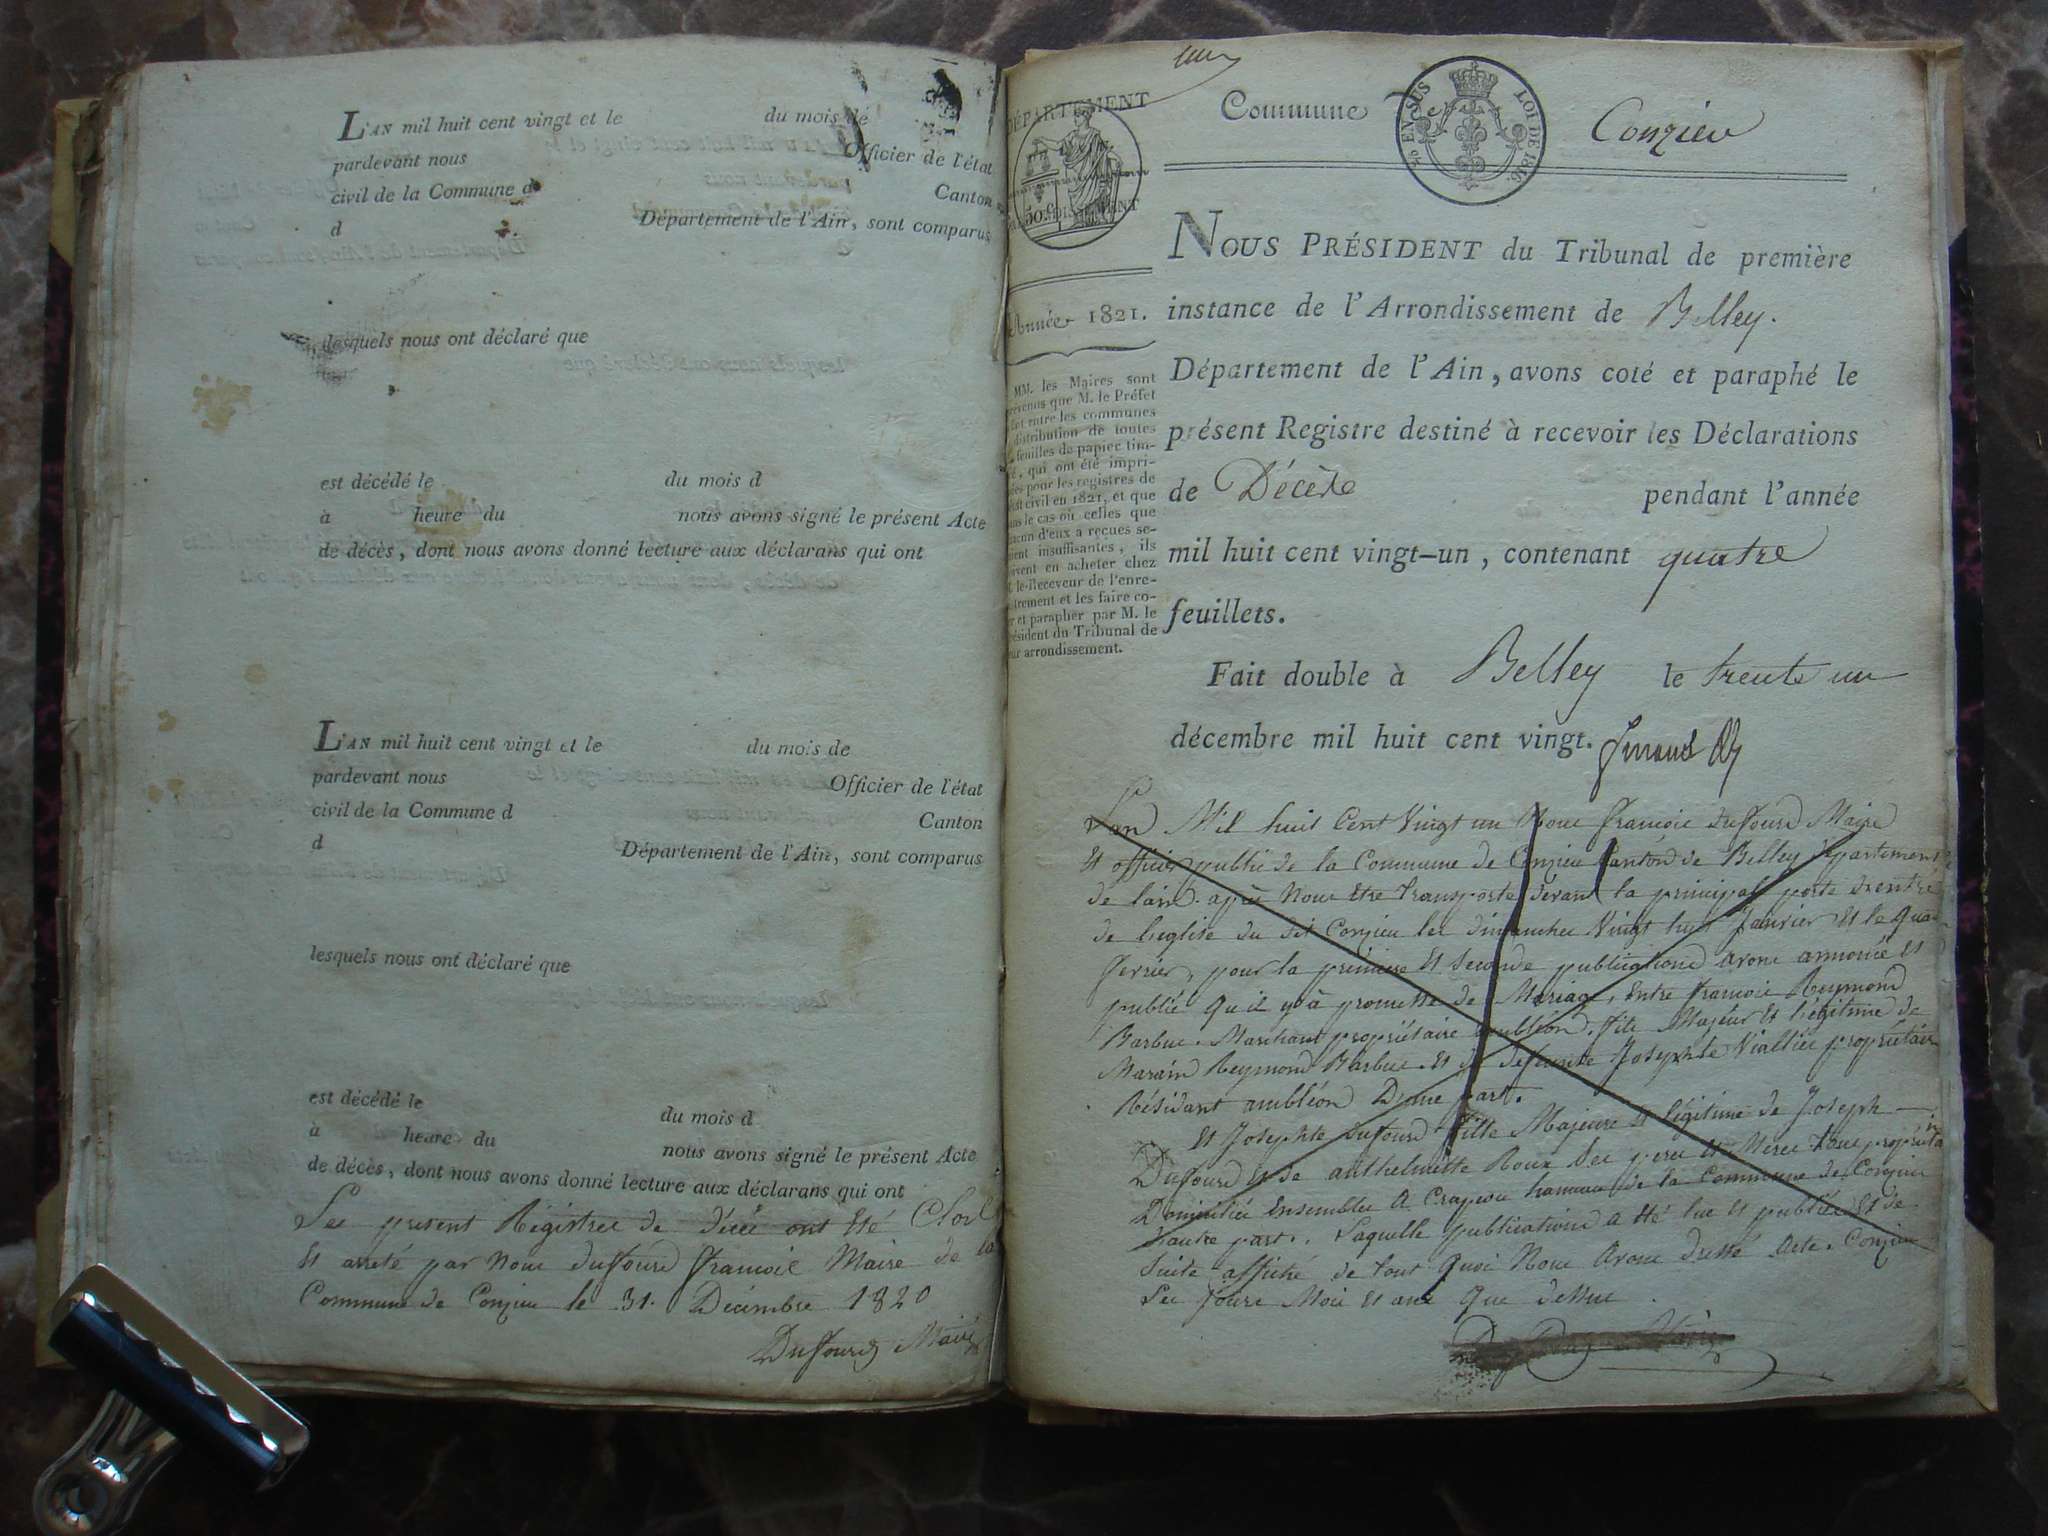 L'AN mil huit cent vingt et le du mois de
pardevant nous Officier de l'état
civil de la Commune d Canton
d Département de l'Ain, sont comparus
lesquels nous ont déclaré que
est décédé le du mois d
à heure du nous avons signé le présent Acte
de décès, dont nous avons donné lecture aux déclarans qui ont
L'AN mil huit cent vingt et le du mois de
pardevant nous Officier de l'état
civil de la Commune d Canton
d Département de l'Ain, sont comparus
lesquels nous ont déclaré que
est décédé le du mois d
à heure du nous avons signé le présent Acte
de décès, dont nous avons donné lecture aux déclarans qui ont
Les present Régistree de décès ont été Clos
Et arreté par Nous duffourd francois Maire de la
Commune de Conzieu le 31. Décembre 1820
Duffourd Maire
un
DÉPARTEMENT
50 c
Commune
EN SUS
LOI DE 1816.
Conzieu
Année 1821.
MM. les Maires sont
prévenus que M. le Préfet
entre les communes
distribution de toutes
feuilles de papier tim-
qui ont été impri-
pour les registres de
civil en 1821, et que
le cas où celles que
d'eux a reçues se-
insuffisantes, ils
en acheter chez
le Receveur de l'enre-
et les faire co-
et parapher par M. le
Président du Tribunal de
arrondissement.
NOUS PRÉSIDENT du Tribunal de première
instance de l'Arrondissement de Belley.
Département de l'Ain, avons coté et paraphé le
présent Registre destiné à recevoir les Déclarations
de Décès pendant l'année
mil huit cent vingt-un, contenant quatre
feuillets.
Fait double à Belley le trente un
décembre mil huit cent vingt.
L'an Mil huit Cent Vingt un Nous francois duffourd Maire
Et officier public de la Commune de Conzieu Canton de Belley département
de l'ain. après Nous Etre transporté devant la principal porte d'entré
de l'eglise du dit Conzieu les dimanches Vingt huit Janvier Et le Quatre
fevrier, pour la premiere Et Seconde publications avons annoncé Et
publié Qu il y à promesse de Mariage, Entre francois Reymond
Barbue. Marchant propriétaire ambléon. fils Majeur Et légitime de
Marain Reymond Barbue. Et de defunte Josephte Viallier propriétaire
Résidant ambléon D'une part.
Et Josephte duffourd fille Majeure Et légitime de Joseph
Duffourd Et de anthelmette Roux Ses pere Et Mere tous propriétaires
Domiciliée Ensembles A Crapeou hameau de la Commune de Conzieu
d'autre part. Laquelle publications a été lue Et publiée Et de
Suite affiché de tout Quoi Nous avons dressé Acte. Conzieu
Les Jours Mois Et ans Que dessus.